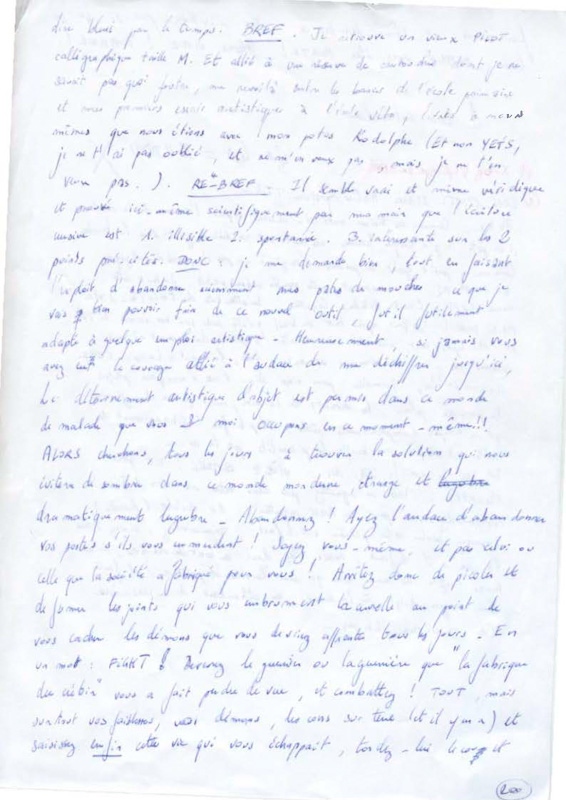 par le temps. BREF. Je retrouve un vieux PILOT
calligraphique taille M. Et allié à une réserve de dont je ne
savais pas quoi foutre, entre les bancs de l'école primaire
et mes premiers essais artistiques à l'école
mêmes que nous étions avec mon potes Rodolphe (Et non YETS,
je ne t'ai pas oublié, et ne m'en veux pas, mais je ne t'en
veux pas.). RE-BREF. Il semble vrai et même véridique
et prouvé ici-même scientifiquement par ma main que l'écriture
cursive est 1. illisible 2. spontanée. 3. intéressante sur les 2
points précités. DONC: je me demande bien, tout en faisant
l'exploit d'abandonner mes pattes de mouches, ce que je
vais bien pouvoir faire de ce nouvel outil, fut'il futilement
adapté à quelque emploi artistique. Heureusement, si jamais vous
avez eut le courage allié à l'audace de me déchiffrer jusqu'ici,
Le détournement artistique d'objet est permis dans ce monde
de malade que vous et moi occupons en ce moment-même!!
ALORS cherchons, tous les jours à trouver la solution qui nous
évitera de sombrer dans ce monde mondain, étrange et
dramatiquement lugubre - Abandonnez! Ayez l'audace d'abandonner
vos postes s'ils vous emmerdent! Soyez vous-même, et pas celui ou
celle que la société a fabriqué pour vous! Arrêtez donc de picoler et
de fumer les joints qui vous embrument la cervelle au point de
vous cacher les démons que vous devriez affronter tous les jours. En
un mot: FIGHT! Devenez le guerrier ou la guerrière que "la fabrique
du crétin" vous a fait perdre de vue, et combattez! TOUT, mais
surtout vos faiblesses, vos démons, les cons sur terre (et il y en a) et
saisissez enfin cette vie qui vous échappait, tordez-lui le cou et
200